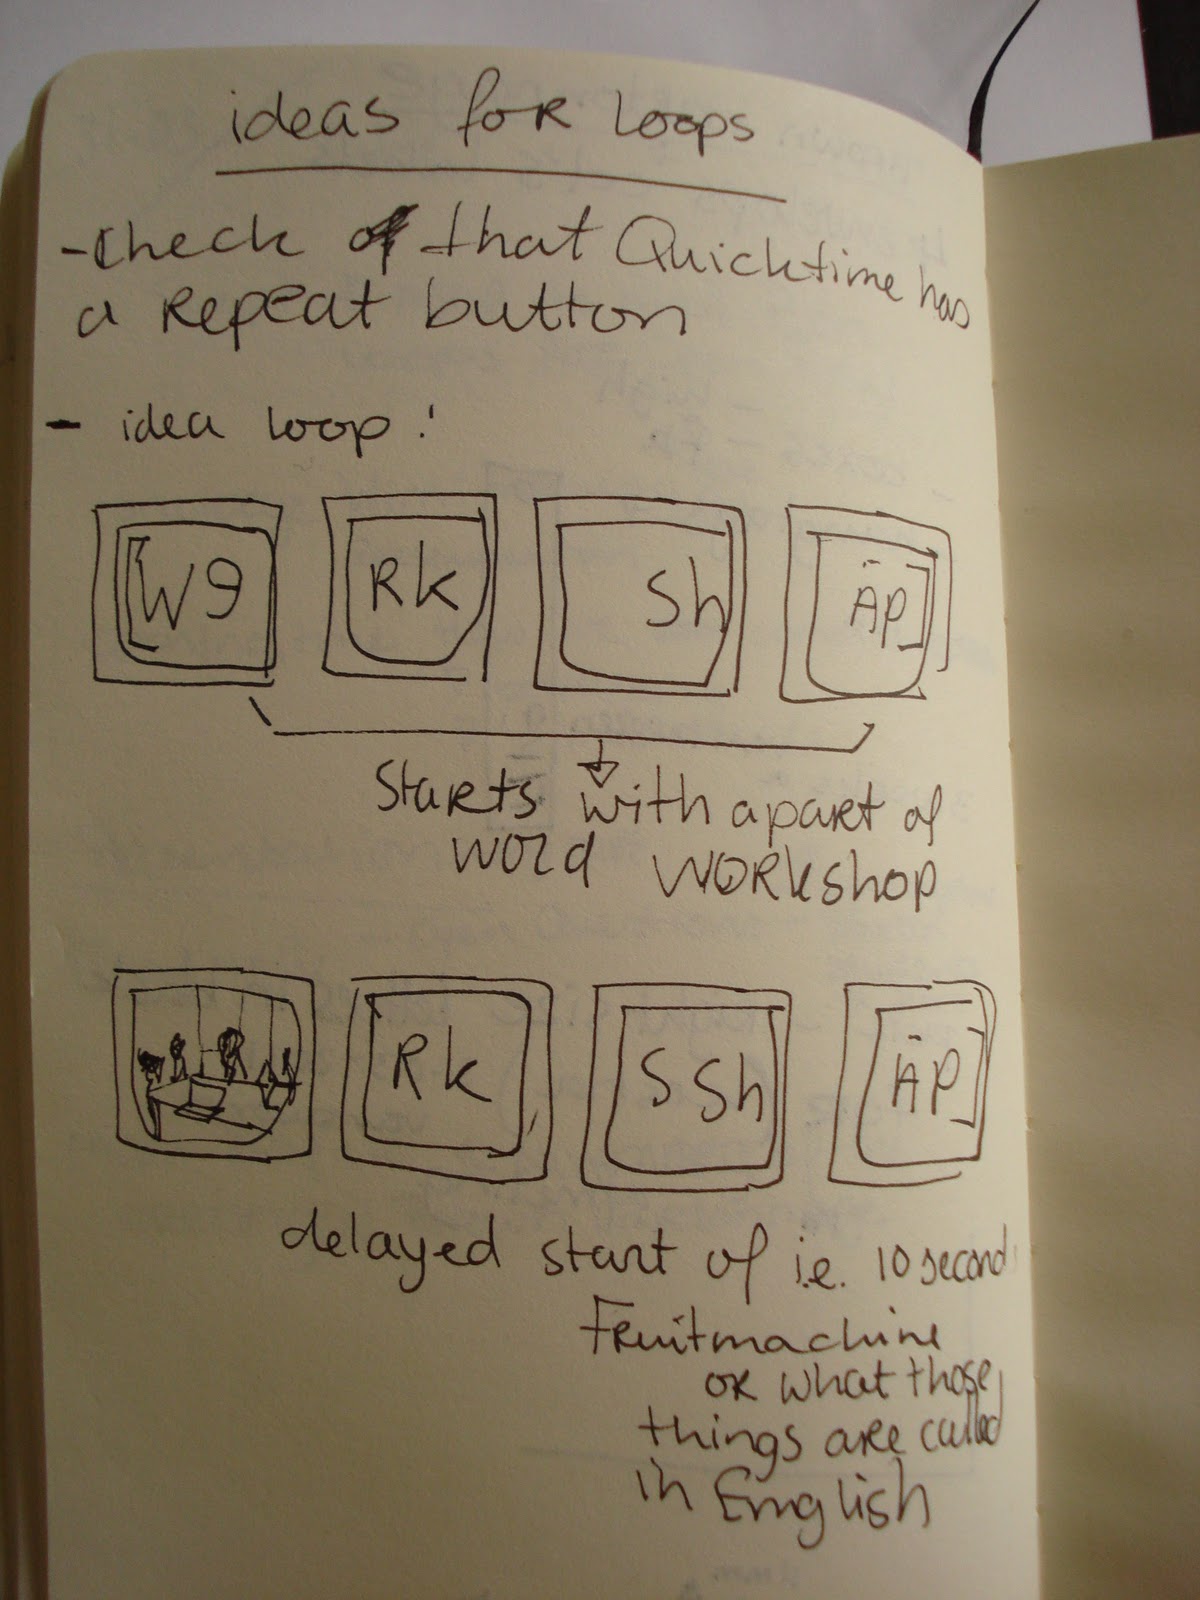 ideas for loops
- Check of that Quicktime has
a repeat button
- idea loop:
[W9 Rk Sh ÄP]
Starts with a part of
word workshop
Rk SSh ÄP]
delayed start of i.e. 10 second
Fruitmachine
or what those
things are called
in English